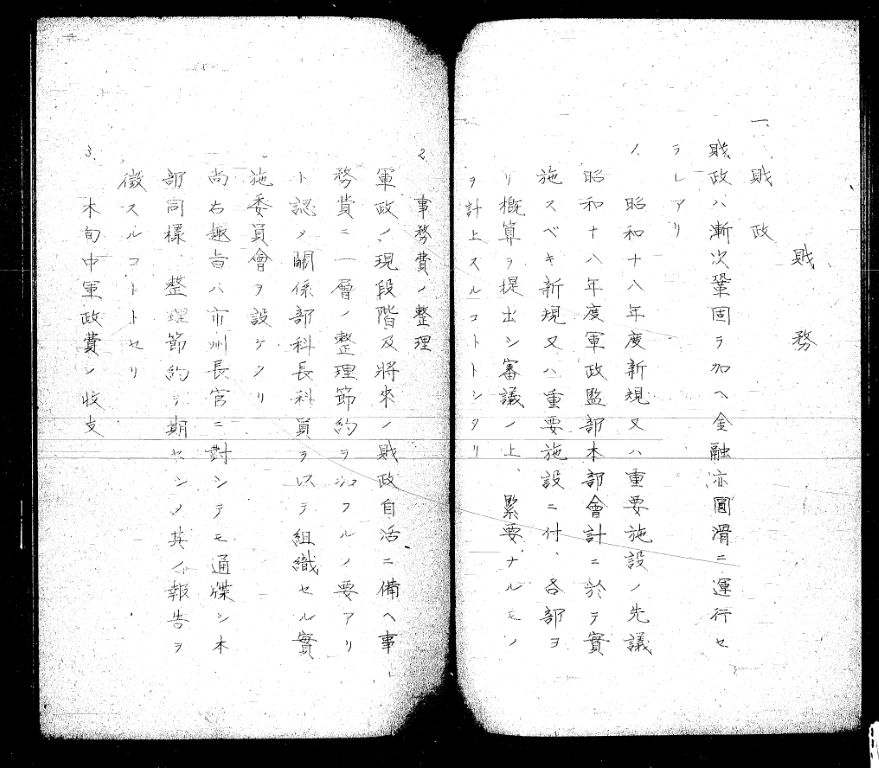 財務
一、財政
財政ハ漸次鞏固ヲ加ヘ金融亦圓滑ニ運行セ
ラレアリ
1、昭和十八年度新規又ハ重要施設ノ先議
昭和十八年度軍政監部本部會計ニ於テ實
施スベキ新規又ハ重要施設ニ付、各部ヨ
リ概算ヲ提出シ審議ノ上、緊要ナルモノ
ヲ計上スルコトトシタリ
2、事務費ノ整理
軍政ノ現段階及將來ノ財政自活ニ備ヘ事
務費ニ一層ノ整理節約ヲ加フルノ要アリ
ト認メ關係部科長科員ヲ以テ組織セル實
施委員會ヲ設ケタリ
尚右趣旨ハ市州長官ニ對シテモ通牒シ本
部同樣整理節約ヲ期セシメ其ノ報告ヲ
徵スルコトトセリ
3、本旬中軍政費ノ收支